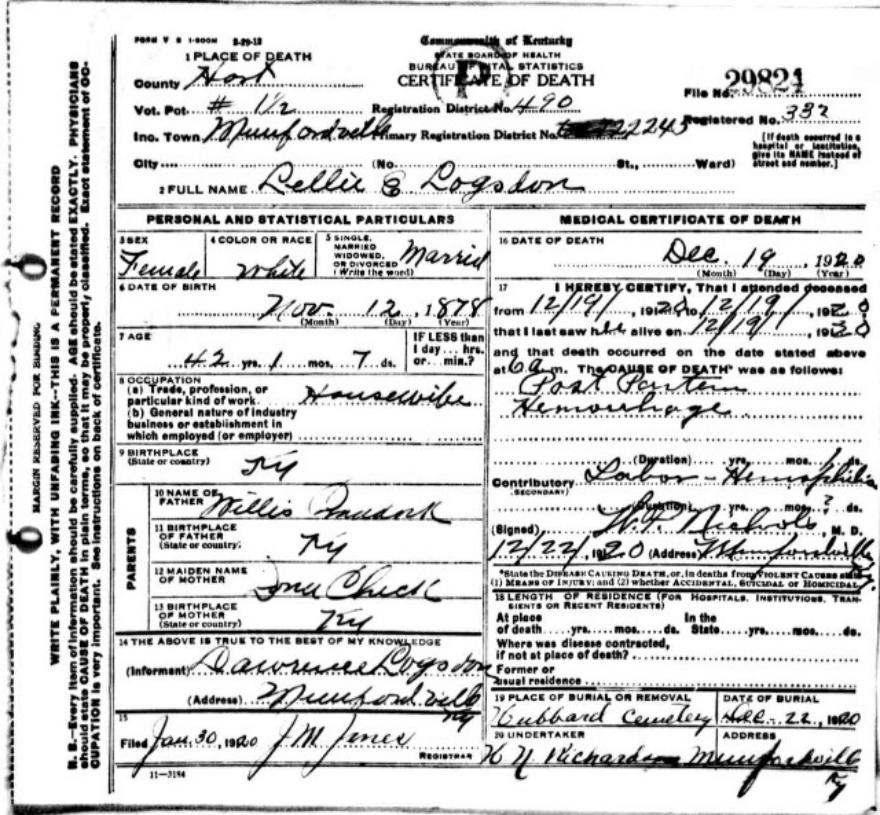 FORM V S 1-500M 2-29-12
Commonwealth of Kentucky
STATE BOARD OF HEALTH
BUREAU OF VITAL STATISTICS
CERTIFICATE OF DEATH
P
1 PLACE OF DEATH
County Hart
File No. 29821
Vot. Pct. # 1/2 Registration District No. 490 Registered No. 332
Inc. Town Munfordville Primary Registration District No. 2245
[If death occurred in a hospital or institution, give its NAME instead of street and number.]
City (No. St., Ward)
2 FULL NAME Lellie E Logsdon
PERSONAL AND STATISTICAL PARTICULARS
3 SEX
Female
4 COLOR OR RACE
White
5 SINGLE, MARRIED WIDOWED, OR DIVORCED (Write the word)
Married
6 DATE OF BIRTH
Nov. 12, 1878
(Month) (Day) (Year)
7 AGE
42 yrs. 1 mos. 7 ds.
IF LESS than 1 day... hrs. or... min.?
8 OCCUPATION
(a) Trade, profession, or
particular kind of work. Housewife
(b) General nature of industry
business or establishment in
which employed (or employer)
9 BIRTHPLACE
(State or country) Ky
PARENTS
10 NAME OF FATHER Willis
11 BIRTHPLACE OF FATHER
(State or country) Ky
12 MAIDEN NAME OF MOTHER Check
13 BIRTHPLACE OF MOTHER
(State or country) Ky
14 THE ABOVE IS TRUE TO THE BEST OF MY KNOWLEDGE
(Informant) Lawrence Logsdon
(Address) Munfordville
Ky
15
Filed Jan. 30, 1920 J M Jones
REGISTRAR
11-3184
MEDICAL CERTIFICATE OF DEATH
16 DATE OF DEATH
Dec. 19, 1920
(Month) (Day) (Year)
17 I HEREBY CERTIFY, That I attended deceased
from 12/19/, 1920 to 12/19/, 1920
that I last saw her alive on 12/19/, 1920
and that death occurred on the date stated above
at 6 a m. The CAUSE OF DEATH* was as follows:
Post Partem
Hemorrhage
(Duration) yrs. mos. ds.
Contributory Labor - Hemophilia
(SECONDARY)
(Duration) yrs. mos. ? ds.
(Signed) Nichols, M. D.
12/22/, 1920 (Address) Munfordville
*State the DISEASE CAUSING DEATH, or, in deaths from VIOLENT CAUSES state
(1) MEANS OF INJURY; and (2) whether ACCIDENTAL, SUICIDAL OR HOMICIDAL.
18 LENGTH OF RESIDENCE (FOR HOSPITALS, INSTITUTIONS, TRANSIENTS OR RECENT RESIDENTS)
At place In the
of death yrs. mos. ds. State yrs. mos. ds.
Where was disease contracted,
if not at place of death?
Former or
usual residence
19 PLACE OF BURIAL OR REMOVAL
Hubbard Cemetery
DATE OF BURIAL
Dec. 22, 1920
20 UNDERTAKER
H N Richardson
ADDRESS
Munfordville
Ky
MARGIN RESERVED FOR BINDING
WRITE PLAINLY, WITH UNFADING INK--THIS IS A PERMANENT RECORD
N. B.--Every item of information should be carefully supplied. AGE should be stated EXACTLY. PHYSICIANS
should state CAUSE OF DEATH in plain terms, so that it may be properly classified. Exact statement of OC-
CUPATION is very important. See instructions on back of certificate.